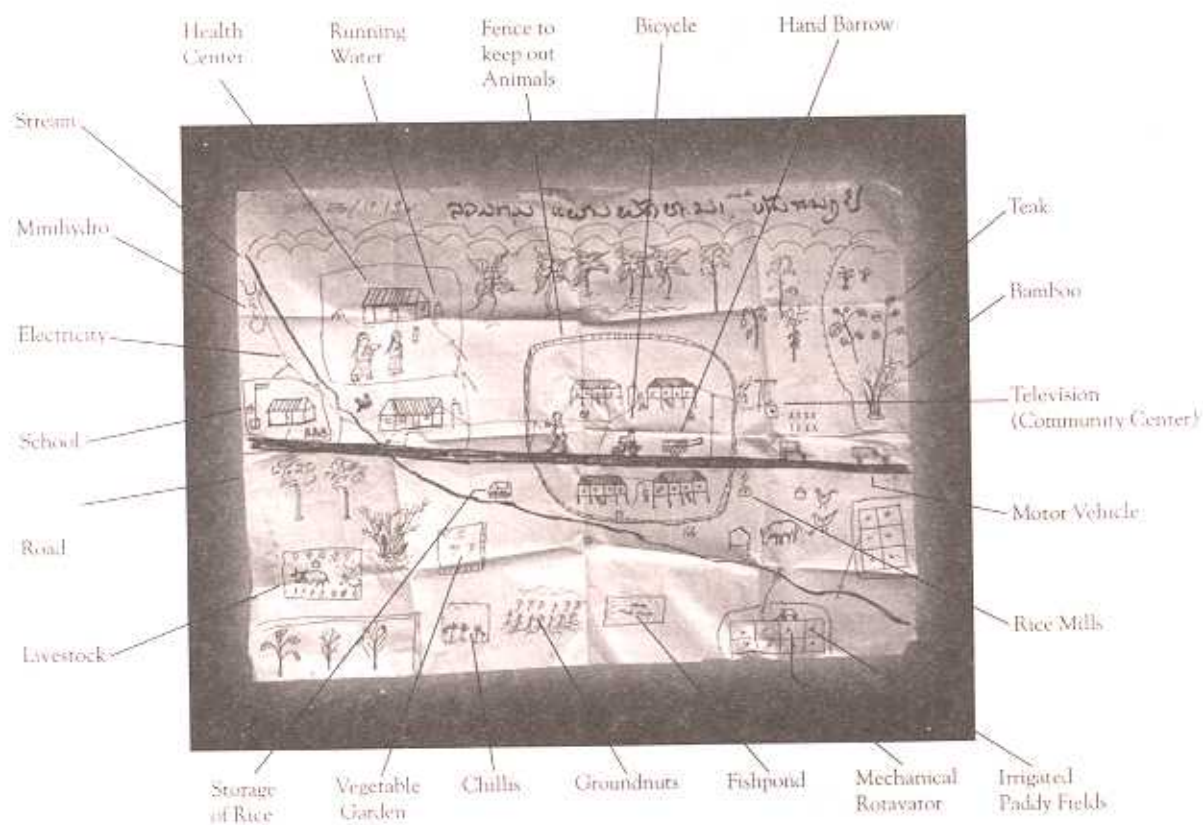 Health
Center
Running
Water
Fence to
keep out
Animals
Bicycle
Hand Barrow
Stream
Minihydro
Electricity
School
Road
Livestock
Teak
Bamboo
Television
(Community Center)
Motor Vehicle
Rice Mills
Storage
of Rice
Vegetable
Garden
Chillis
Groundnuts
Fishpond
Mechanical
Rotavator
Irrigated
Paddy Fields